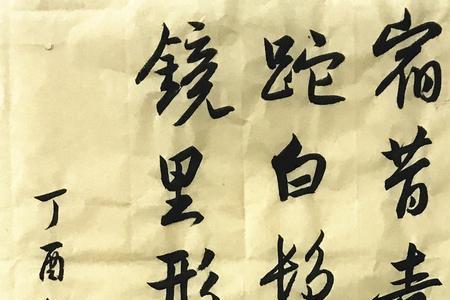 宿昔青
跎白髮
鏡里形
丁酉